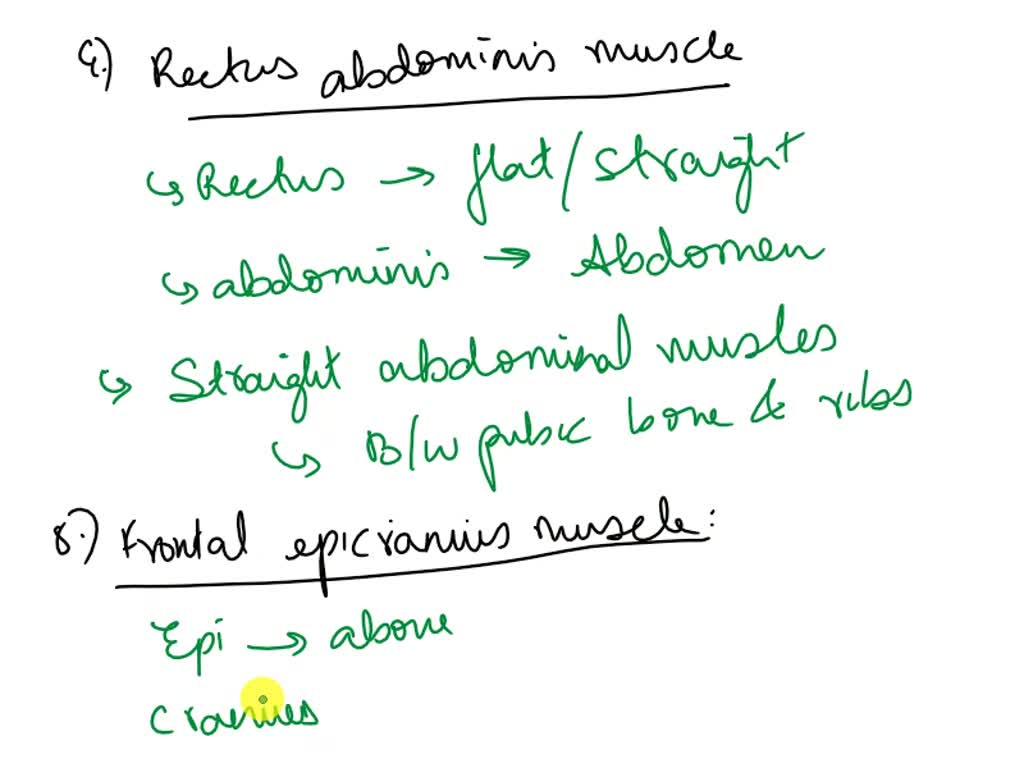 4.) Rectus abdominis muscle
↳ Rectus → flat/straight
↳ abdominis → Abdomen
↳ Straight abdominal muscles
↳ B/w pubic bone & ribs
8.) Frontal epicranius muscle:
Epi → above
Cranius